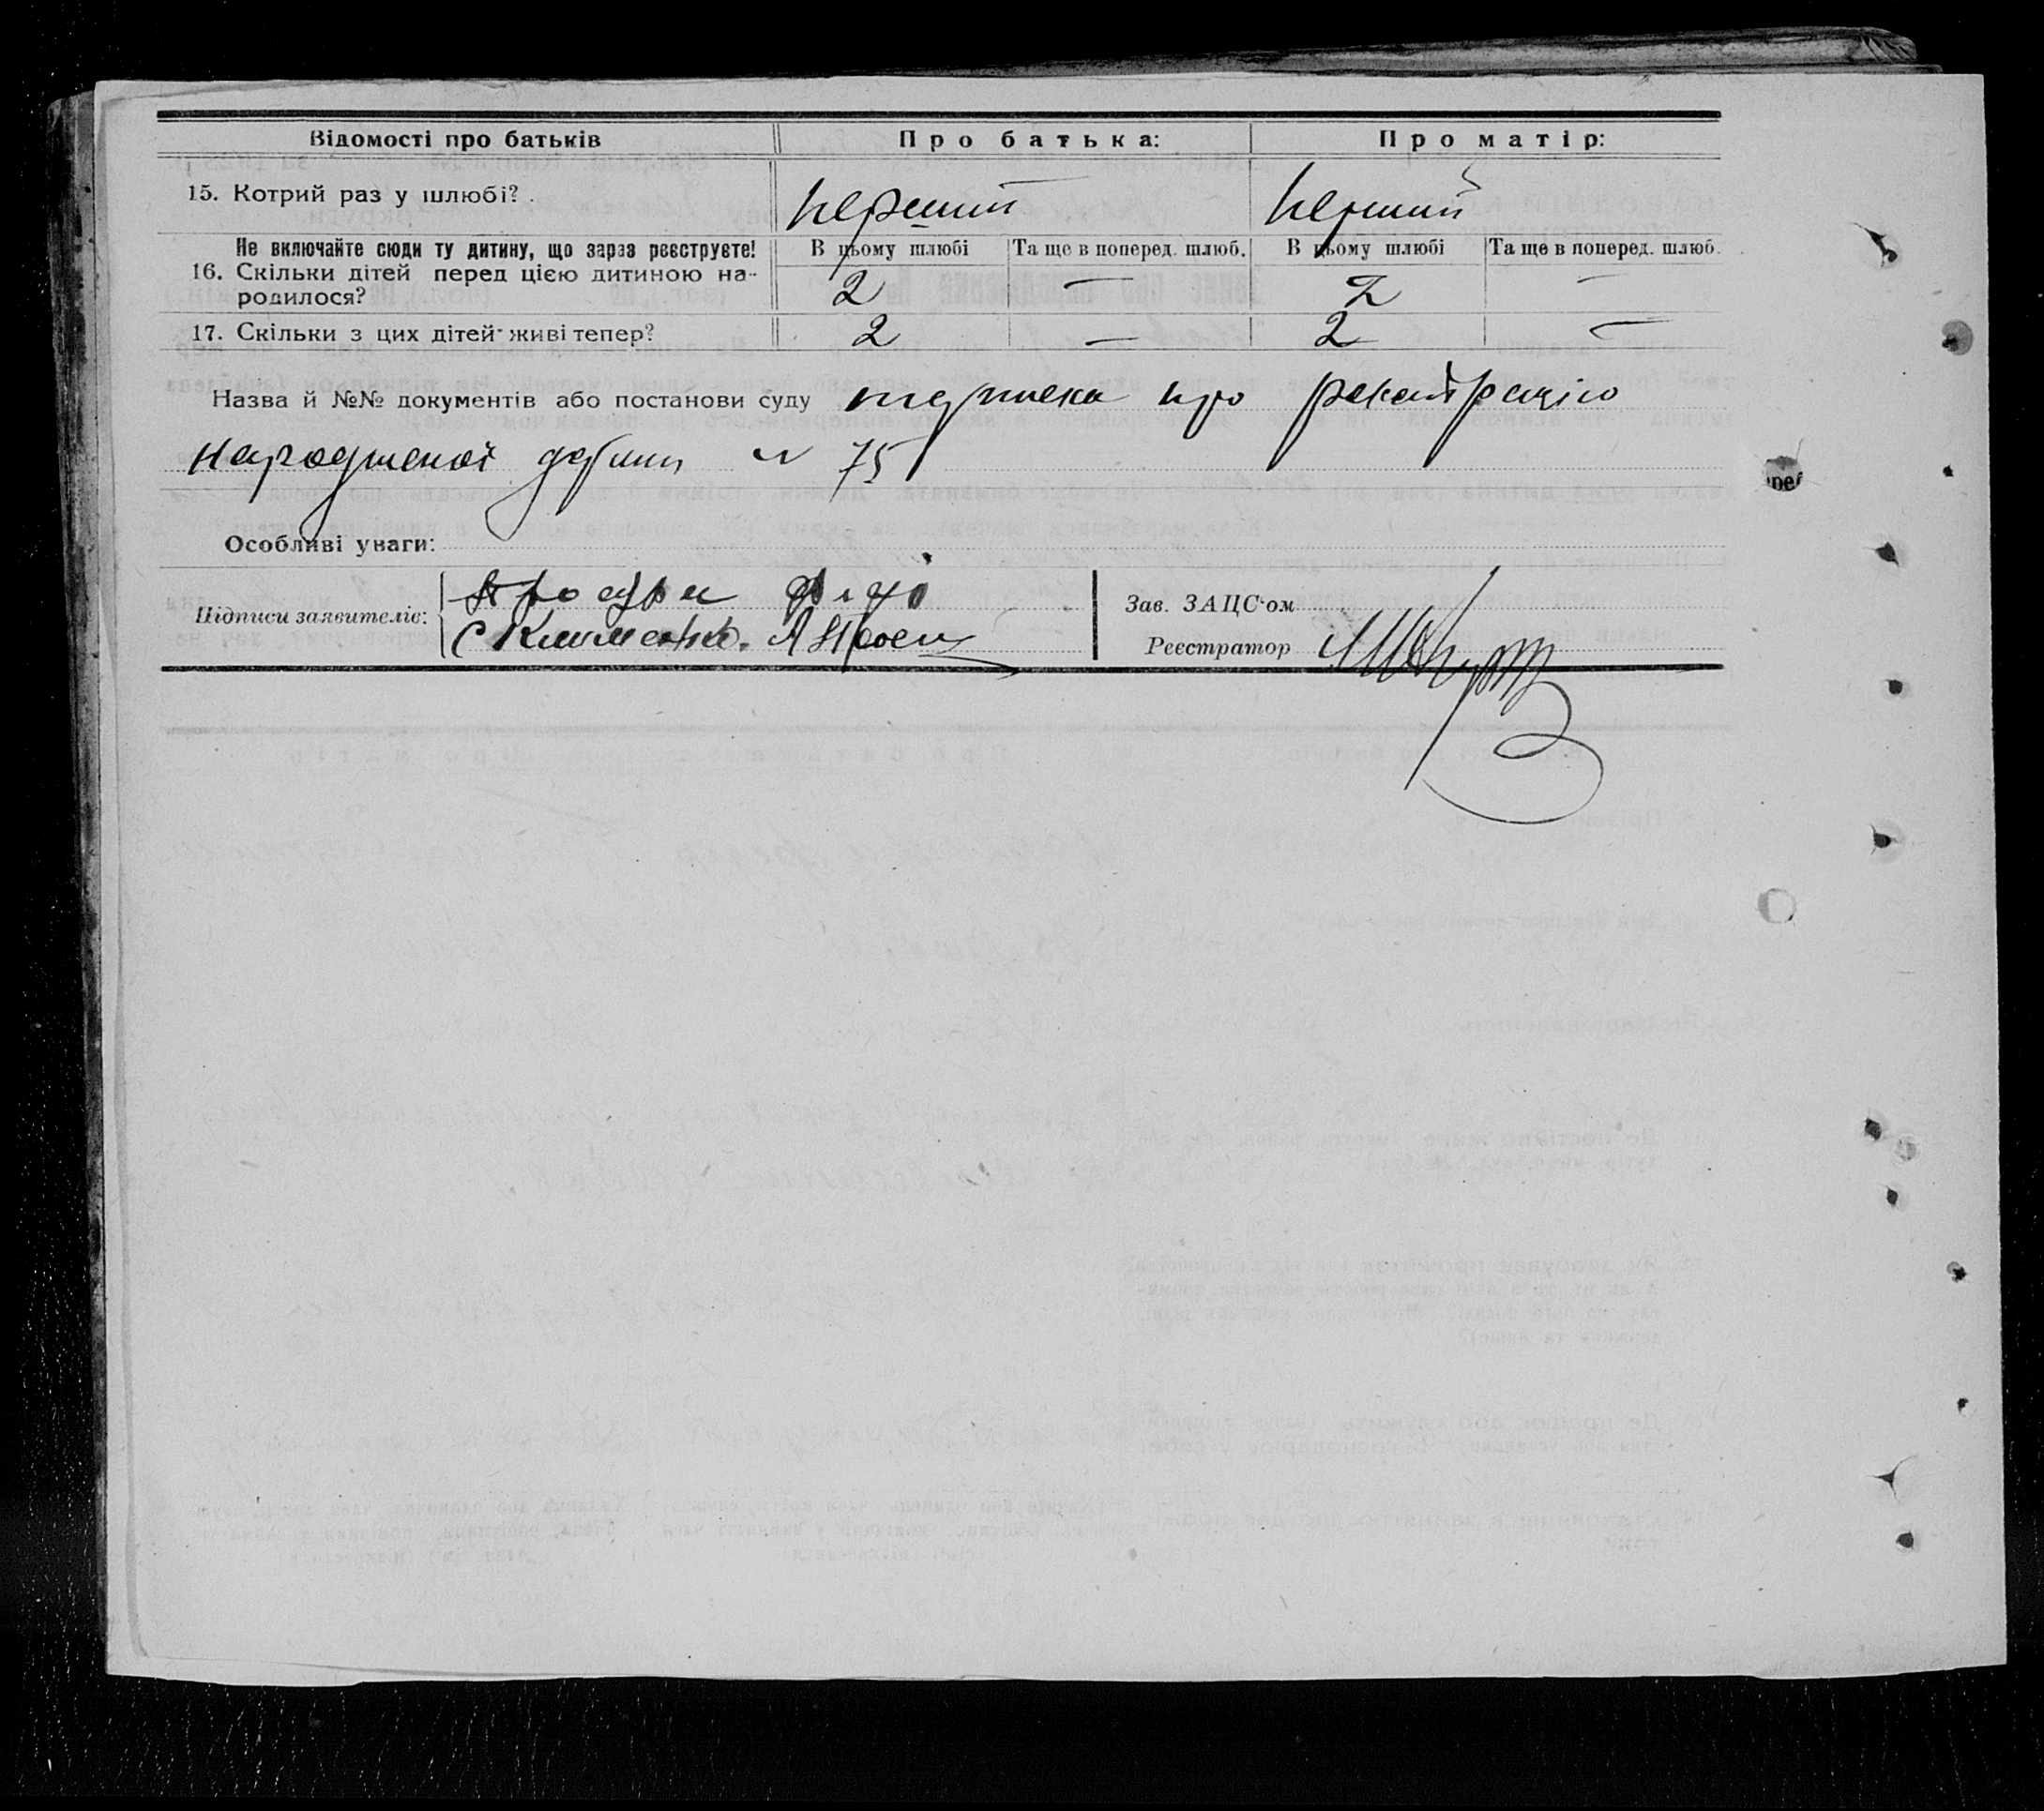 Відомості про батьків Про батька: Про матір:
15. Котрий раз у шлюбі? перший перший
Не включайте сюди ту дитину, що зараз реєструєте! В цьому шлюбі Та ще в поперед. шлюб. В цьому шлюбі Та ще в поперед. шлюб.
16. Скільки дітей перед цією дитиною на-
родилося? 2 — 2 —
17. Скільки з цих дітей живі тепер? 2 — 2 —
Назва й №№ документів або постанови суду про
75
Особливі уваги:
Підписи заявителів:
Зав. ЗАЦС'ом
Реєстратор